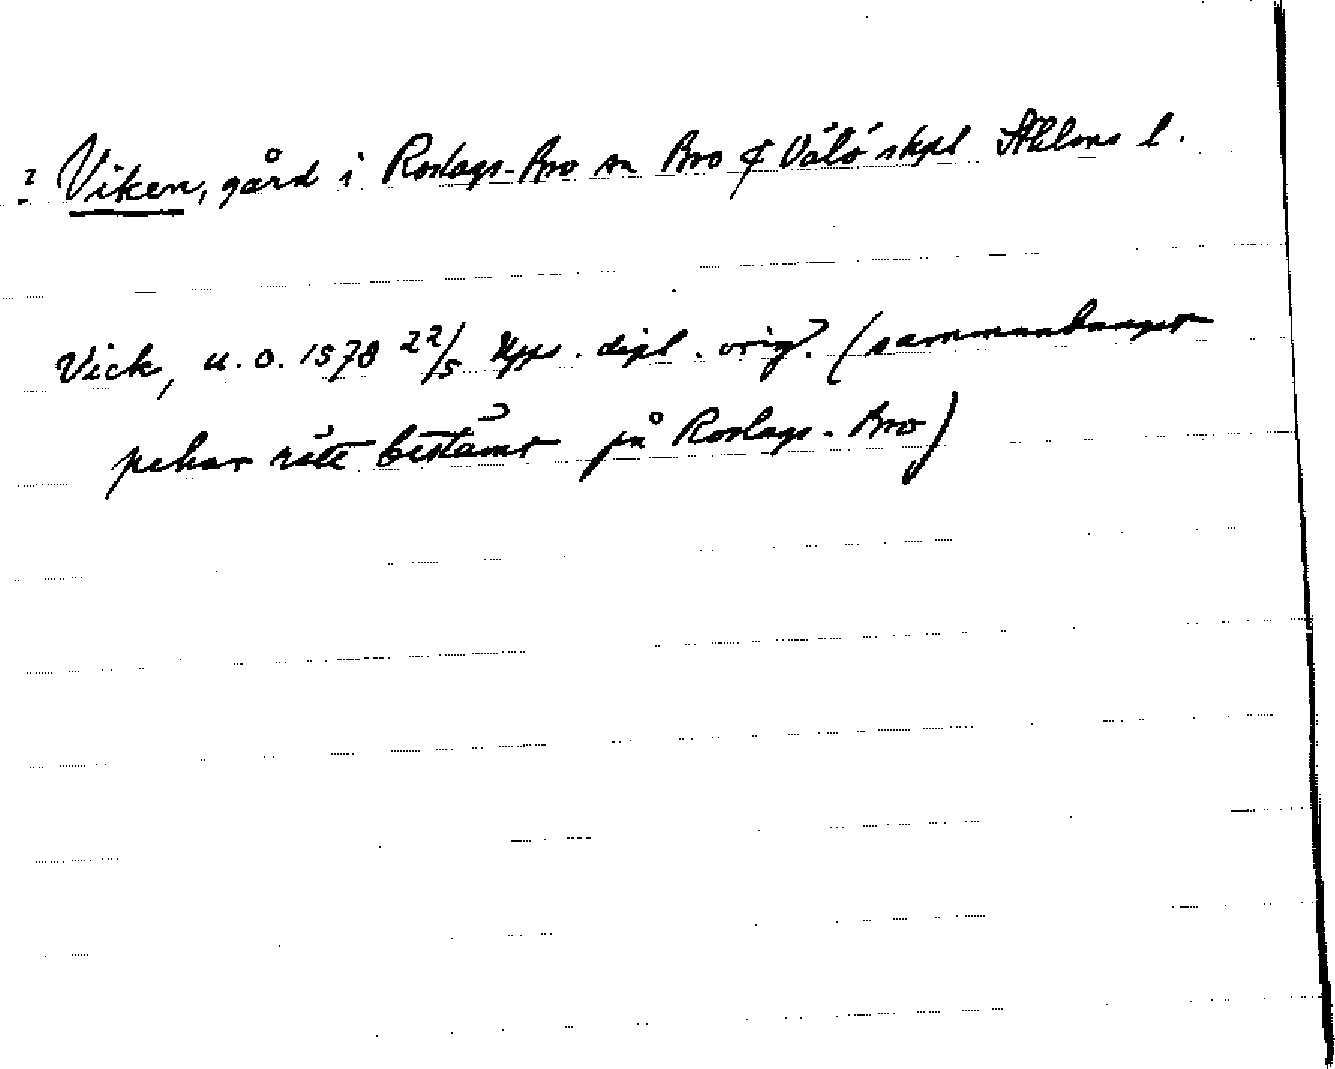 ? Viken, gård i Roslags-Bro sn Bro & Väló skpl Sthlms l.
Vick, u. o. 1578 22/5 Upps. dipl. orig. (sammanhanget
pekar rätt bestämt på Roslags-Bro)